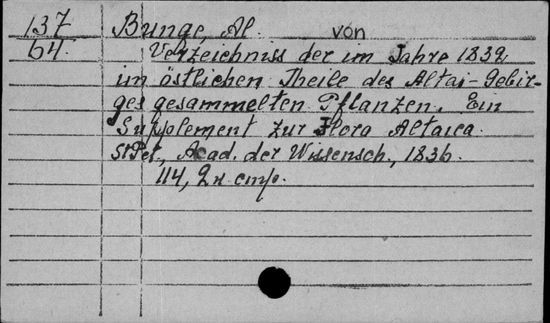 137 Bunge, Al. von
64. Verzeichniss der im Jahre 1832
im östlichen Theile des Altai-Gebir-
ges gesammelten Pflanzen. Ein
Supplement zur Flora Altaica.
StPet., Acad. der Wissensch., 1836.
114, 2 н. стр.